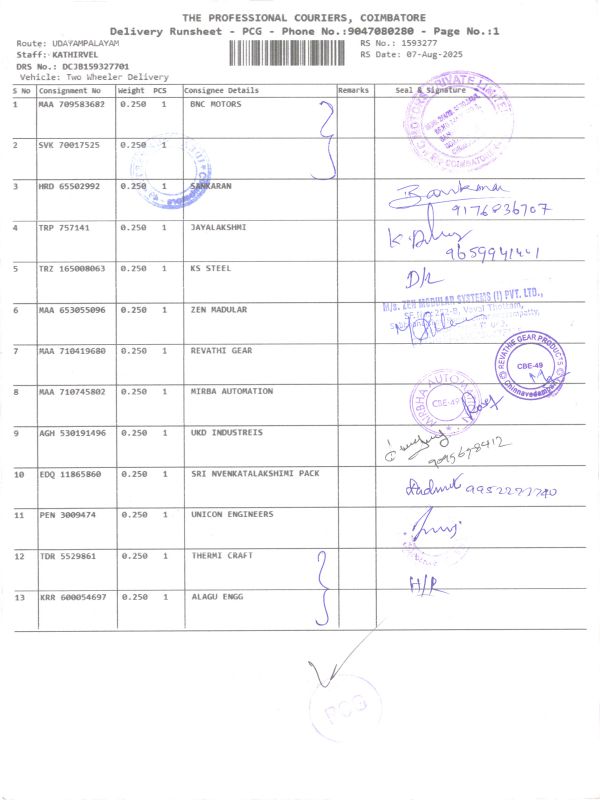 THE PROFESSIONAL COURIERS, COIMBATORE
Delivery Runsheet - PCG - Phone No.:9047080280 - Page No.:1
Route: UDAYAMPALAYAM RS No.: 1593277
Staff: KATHIRVEL RS Date: 07-Aug-2025
DRS No.: DCJB159327701
Vehicle: Two Wheeler Delivery
S No Consignment No Weight PCS Consignee Details Remarks Seal & Signature
1 MAA 709583682 0.250 1 BNC MOTORS
2 SVK 70017525 0.250 1
3 HRD 65502992 0.250 1 SANKARAN Sankaran
9176836707
4 TRP 757141 0.250 1 JAYALAKSHMI
9659941441
5 TRZ 165008063 0.250 1 KS STEEL D/L
6 MAA 653055096 0.250 1 ZEN MADULAR M/s. ZEN MODULAR SYSTEMS (I) PVT. LTD.,
7 MAA 710419680 0.250 1 REVATHI GEAR REVATHIE GEAR PRODUCTS
CBE-49
Chinnavedampatti
8 MAA 710745802 0.250 1 MIRBA AUTOMATION MIRBHA AUTOMATION
CBE-49
9 AGH 530191496 0.250 1 UKD INDUSTREIS
9095698412
10 EDQ 11865860 0.250 1 SRI NVENKATALAKSHIMI PACK
9952277740
11 PEN 3009474 0.250 1 UNICON ENGINEERS
12 TDR 5529861 0.250 1 THERMI CRAFT
H/R
13 KRR 600054697 0.250 1 ALAGU ENGG
PCG